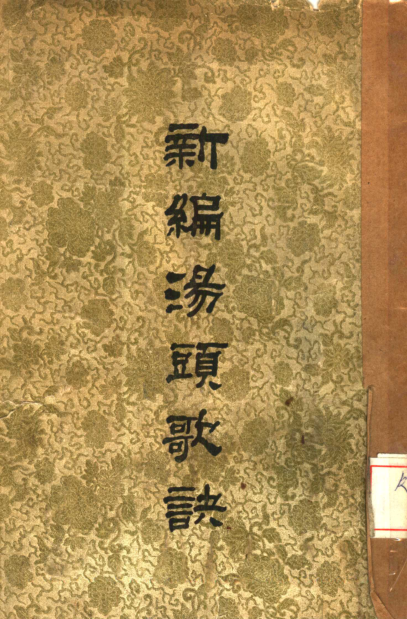 新編湯頭歌訣